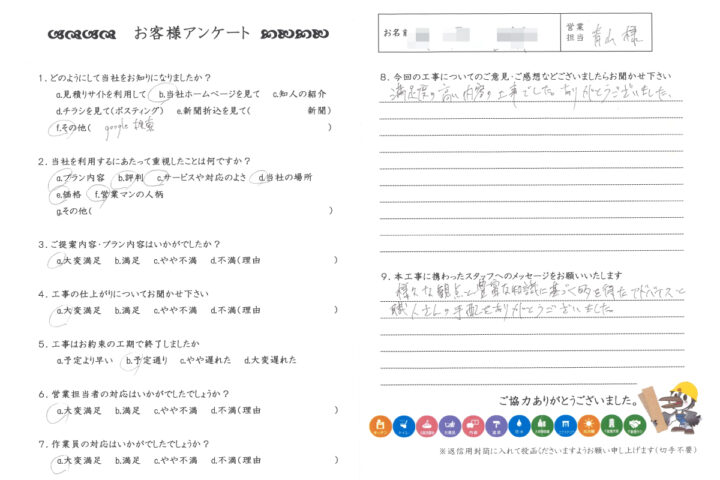 お客様アンケート
1. どのようにして当社をお知りになりましたか？
a.見積りサイトを利用して b.当社ホームページを見て c.知人の紹介
d.チラシを見て(ポスティング) e.新聞折込を見て( 新聞)
f.その他( google 検索 )
2. 当社を利用するにあたって重視したことは何ですか？
a.プラン内容 b.評判 c.サービスや対応のよさ d.当社の場所
e.価格 f.営業マンの人柄
g.その他( )
3. ご提案内容・プラン内容はいかがでしたか？
a.大変満足 b.満足 c.やや不満 d.不満(理由 )
4. 工事の仕上がりについてお聞かせ下さい
a.大変満足 b.満足 c.やや不満 d.不満(理由 )
5. 工事はお約束の工期で終了しましたか
a.予定より早い b.予定通り c.やや遅れた d.大変遅れた
6. 営業担当者の対応はいかがでしたでしょうか？
a.大変満足 b.満足 c.やや不満 d.不満(理由 )
7. 作業員の対応はいかがでしたでしょうか？
a.大変満足 b.満足 c.やや不満 d.不満(理由 )
お名前
営業担当 青山 様
8. 今回の工事についてのご意見・ご感想などございましたらお聞かせ下さい
満足度の高い内容の工事でした。ありがとうございました。
9. 本工事に携わったスタッフへのメッセージをお願いいたします
様々な観点と豊富な知識に基づく的を得たアドバイスと
職人さんの手配をありがとうございました。
ご協力ありがとうございました。
※返信用封筒に入れて投函くださいますようお願い申し上げます(切手不要)